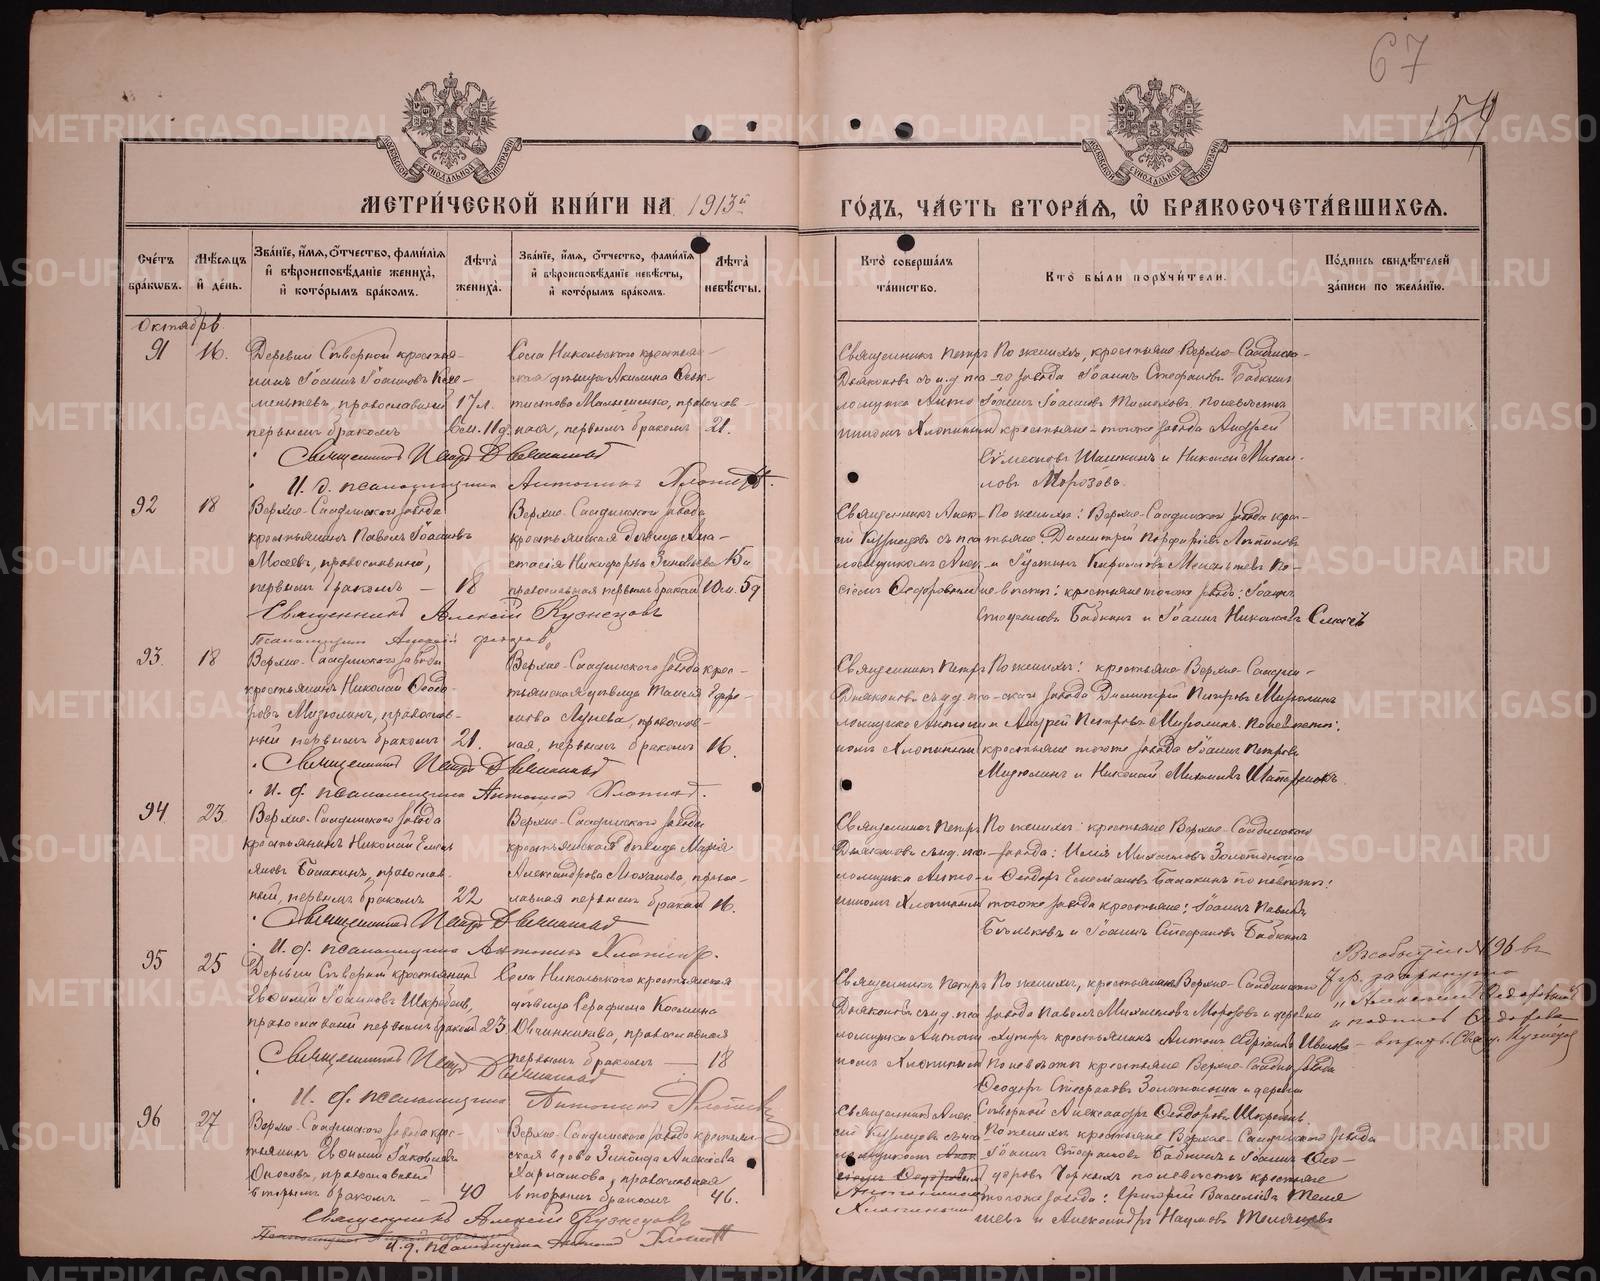 67
154
МЕТРИ́ЧЕСКОЙ КНИ́ГИ НА 1913й
ГО́ДЪ, ЧА́СТЬ ВТОРА́Я, Ѡ БРАКОСОЧЕТА́ВШИХСЯ.
Сче́тъ бра́кѡвъ.
Мѣ́сяцъ и҆ де́нь.
Зва́нїе, и҆́мя, ѻ҆́тчество, фами́лїя и҆ вѣроисповѣ́данїе жениха̀, и҆ кото́рымъ бра́комъ.
Лѣ́та жениха̀.
Зва́нїе, и҆́мя, ѻ҆́тчество, фами́лїя и҆ вѣроисповѣ́данїе невѣ́сты, и҆ кото́рымъ бра́комъ.
Лѣ́та невѣ́сты.
Кто̀ соверша́лъ та́инство.
Кто̀ бы́ли порꙋчи́тели.
По́дпись свидѣ́телей за́писи по жела́нїю.
Октябрь
91
16.
Деревни Сѣверной крестья-
нинъ Іоаннъ Іоанновъ
православный 17 л.
первымъ бракомъ 6 м. 11 д.
Села Никольскаго крестьян-
ская дѣвица Акилина
православ-
ная, первымъ бракомъ 21.
Священникъ Петръ
Дьяконовъ съ и.д. пса-
ломщика Анто-
ниномъ Хлопинымъ
По женихѣ, крестьяне Верхне-Салдинска-
го завода Іоаннъ Стефановъ Бабкинъ
Іоаннъ Іоанновъ по невѣстѣ
крестьяне того же завода Андрей
Симеоновъ и Николай Михаи-
ловъ Морозовъ.
Священникъ Петръ Дьяконовъ
И. д. псаломщика Антонинъ Хлопинъ.
92
18
Верхне-Салдинскаго завода
крестьянинъ Павелъ Іоанновъ
Мосеевъ, православный,
первымъ бракомъ — 18
Верхне-Салдинскаго завода
крестьянская дѣвица Ана-
стасія Никифорова Зиновьева 15 л.
православная первымъ бракомъ 10 м. 5 д
Священникъ Алек-
сій Кузнецовъ съ пса-
ломщикомъ Алек-
сіемъ Ѳедоровымъ
По женихѣ: Верхне-Салдинскаго завода кре-
стьяне: Димитрій Порфиріевъ
и Іустинъ Кириловъ По
невѣстѣ: крестьяне того же завода: Іоаннъ
Стефановъ Бабкинъ и Іоаннъ Николаевъ
Священникъ Алексій Кузнецовъ
Псаломщикъ Алексѣй Ѳедоровъ
93.
18
Верхне-Салдинскаго завода
крестьянинъ Николай Ѳеодо-
ровъ Мизюлинъ, православ-
ный первымъ бракомъ 21.
Верхне-Салдинскаго завода крес-
тьянская дѣвица Таисія Ефре-
мова Лунева, православ-
ная, первымъ бракомъ 16.
Священникъ Петръ
Дьяконовъ съ и.д. пса-
ломщика Антони-
номъ Хлопинымъ
По женихѣ: крестьяне Верхне-Салдин-
скаго завода Димитрій Петровъ Мизюлинъ
и Андрей Петровъ Мизюлинъ. По невѣстѣ:
крестьяне того же завода Іоаннъ Петровъ
Мизюлинъ и Николай Михаиловъ
Священникъ Петръ Дьяконовъ
И. д. псаломщика Антонинъ Хлопинъ.
94.
23.
Верхне-Салдинскаго завода
крестьянинъ Николай Емель
яновъ Балакинъ, православ-
ный, первымъ бракомъ 22
Верхне-Салдинскаго завода
крестьянская дѣвица Марія
Александрова Лоханова, право-
славная первымъ бракомъ 16.
Священникъ Петръ
Дьяконовъ съ и.д. пса-
ломщика Анто-
ниномъ Хлопинымъ
По женихѣ: крестьяне Верхне-Салдинскаго
завода: Илія Михаиловъ Золотоноша
и Ѳеодоръ Емеліановъ Балакинъ по невѣстѣ:
того же завода крестьяне: Іоаннъ Павловъ
Бѣльковъ и Іоаннъ Стефановъ Бабкинъ
Священникъ Петръ Дьяконовъ
И. д. псаломщика Антонинъ Хлопинъ.
95
25
Деревни Сѣверной крестьянинъ
Василій Іоанновъ Шкребень,
православный первымъ бракомъ 23
Села Никольскаго крестьянская
дѣвица Серафима Космина
Овчинникова, православная
первымъ бракомъ — 18
Священникъ Петръ
Дьяконовъ съ и.д. пса-
ломщика Антони-
номъ Хлопинымъ
По женихѣ, крестьянинъ Верхне-Салдинскаго
завода Павелъ Михаиловъ Морозовъ и деревни
Хуторъ крестьянинъ Антонъ Адріановъ Ивановъ
По невѣстѣ крестьяне Верхне-Салдинск. завода
Ѳеодоръ Стефановъ Золотоноша и деревни
Сѣверной Александръ Ѳеодоровъ Шкребень
Священникъ Петръ Дьяконовъ
И. д. псаломщика Антонинъ Хлопинъ
96
27
Верхне-Салдинскаго завода крес-
тьянинъ Евфимій Іаковлевъ
православный
вторымъ бракомъ — 40
Верхне-Салдинскаго завода крестьян-
ская вдова Зинаида Алексѣева
Харламова, православная
вторымъ бракомъ 46.
Священникъ Алек
сій Кузнецовъ съ пса-
ломщикомъ Алек
сіемъ Ѳедоровымъ
Антониномъ
Хлопинымъ
По женихѣ крестьяне Верхне-Салдинскаго завода
Іоаннъ Стефановъ Бабкинъ и Іоаннъ Ѳео-
доровъ Черныхъ по невѣстѣ крестьяне
того же завода: Григорій Василіевъ Теля
шевъ и Александръ Наумовъ Теляшевъ
Священникъ Алексій Кузнецовъ
И. д. псаломщика Антонинъ Хлопинъ
Въ событіи № 96 въ
7 гр. зачеркнуто
„Алексіемъ Ѳедоровымъ
и подпись Ѳедорова
Свящ. Кузнецов
METRIKI.GASO-URAL.RU